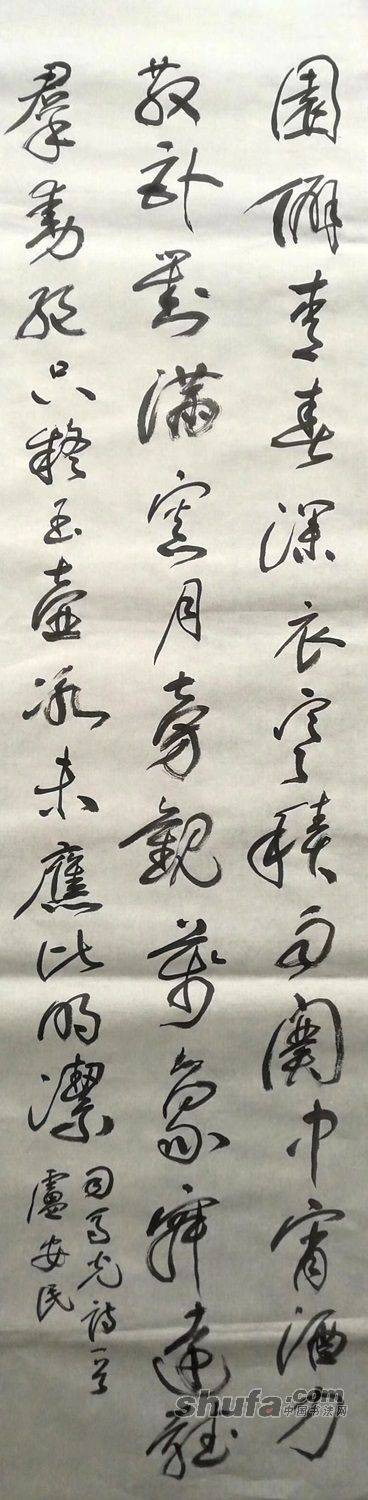 園僻青春深衣寒積雨闋中宵酒力
散卧對滿窗月旁觀萬象寂遠聽
羣動絕只疑玉壺冰未應比明潔
司馬光詩一首
盧安民
shufa.com
中国书法网